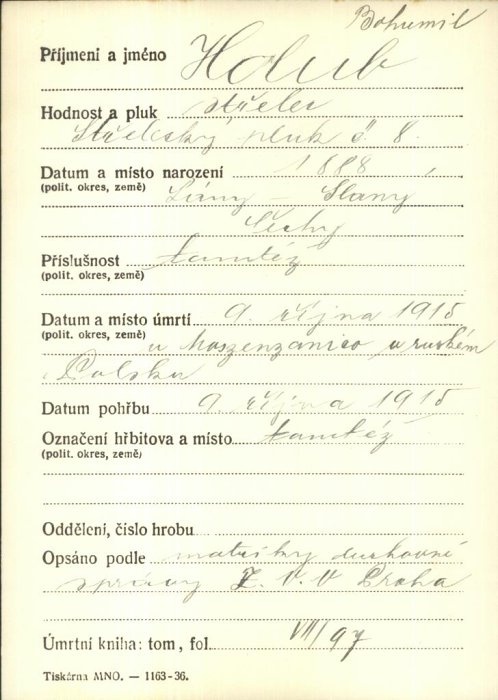 Bohumil
Příjmení a jméno Holub
Hodnost a pluk střelec
Střelecký pluk č. 8.
Datum a místo narození 1888,
(polit. okres, země) Lány – Slaný
Čechy
Příslušnost tamtéž
(polit. okres, země)
Datum a místo úmrtí 9. října 1915
(polit. okres, země) u v ruském
Polsku
Datum pohřbu 9. října 1915
Označení hřbitova a místo tamtéž
(polit. okres, země)
Oddělení, číslo hrobu
Opsáno podle matriky duchovní
správy Z. V. V Praha
Úmrtní kniha: tom, fol. VII/97
Tiskárna MNO. — 1163-36.